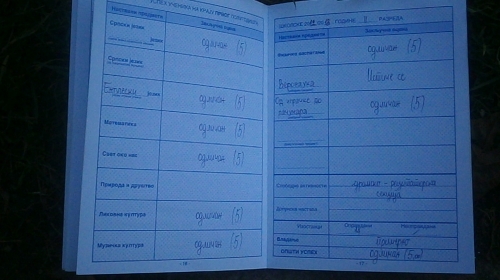 УСПЕХ УЧЕНИКА НА КРАЈУ ПРВОГ ПОЛУГОДИШТА
Наставни предмети
Закључна оцена
Српски језик
одличан (5)
Српски језик
Енглески језик
одличан (5)
Математика
одличан (5)
Свет око нас
одличан (5)
Природа и друштво
Ликовна култура
одличан (5)
Музичка култура
одличан (5)
- 16 -
ШКОЛСКЕ ГОДИНЕ II РАЗРЕДА
Наставни предмети
Закључна оцена
Физичко васпитање
одличан (5)
Веронаука
Истиче се
Од играчке до
рачунара
одличан (5)
Слободне активности
драмско - рецитаторска
секција
Изостанци
Оправдани
Неоправдани
Владање
примерно
ОПШТИ УСПЕХ
одличан (5,00)
- 17 -